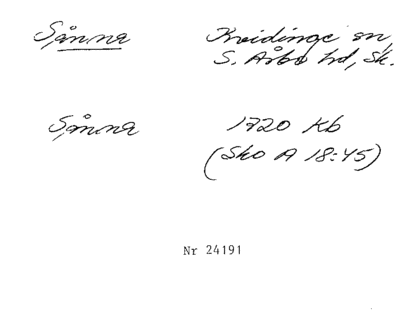 Sånna Kvidinge sn,
S. Åsbo hd, Sk.
Sånna 1720 Kb
(Sko A 18:45)
Nr 24191